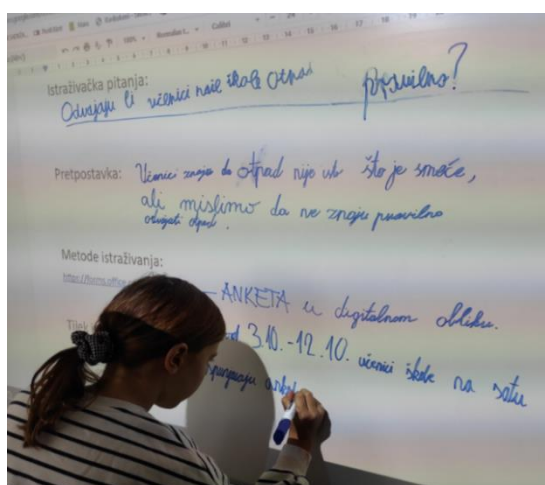 Calibri
Istraživačka pitanja:
Odvajaju li učenici naše škole otpad pravilno?
Pretpostavka: Učenici znaju da otpad nije isto što je smeće,
ali mislimo da ne znaju pravilno
odvajati otpad.
Metode istraživanja:
https://forms.office
- ANKETA u digitalnom obliku.
Tijek
od 3.10.-12.10. učenici škole na satu